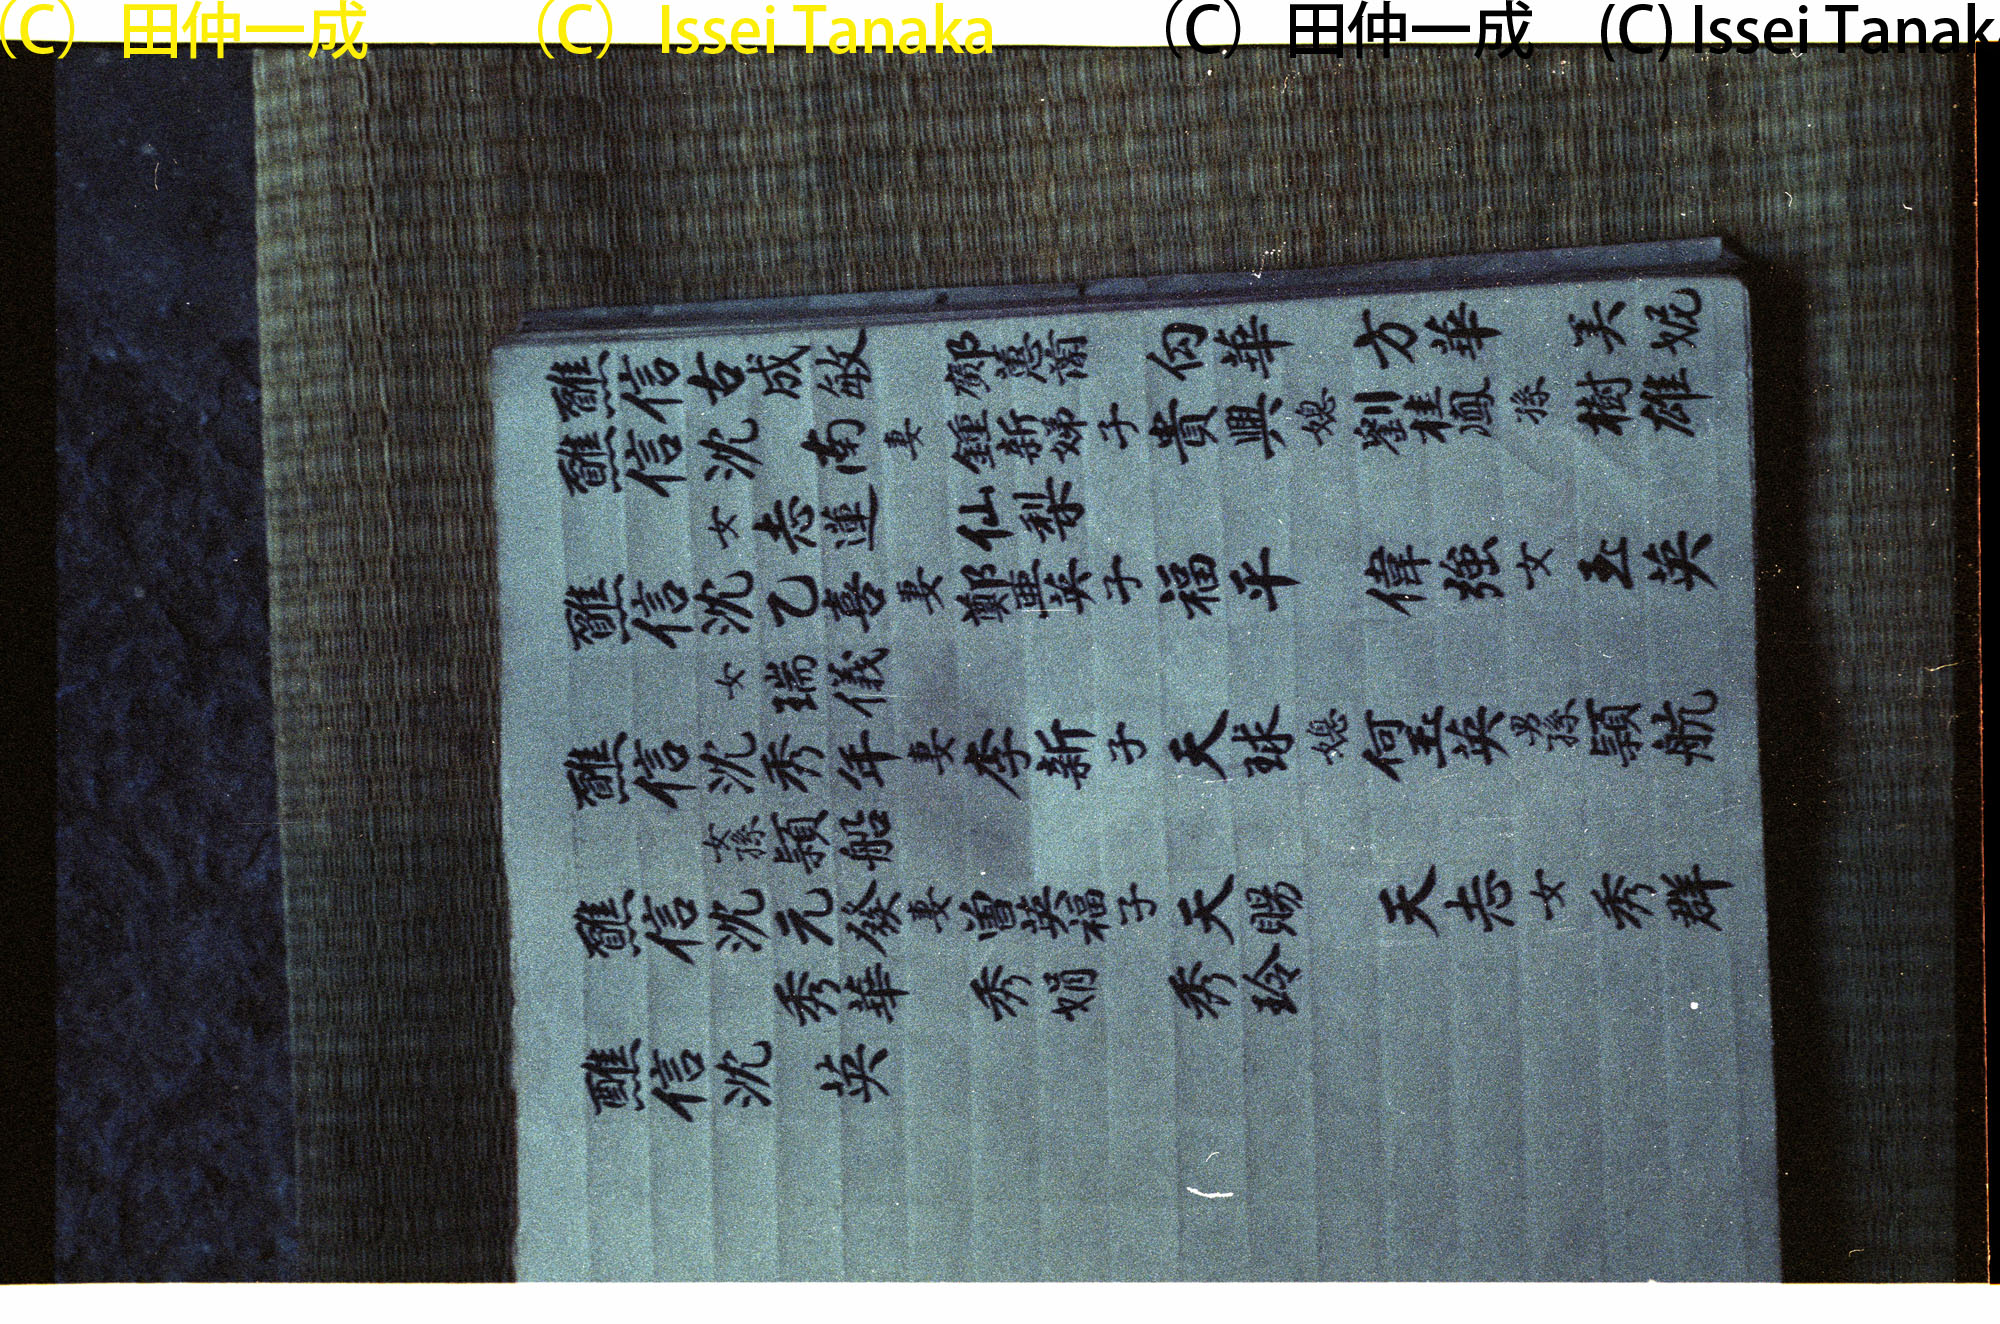 (C) 田仲一成 (C) Issei Tanaka (C) 田仲一成 (C) Issei Tanak
醮信古成敏 鄺蕙蘭 向華 方華 美妮
醮信沈 南 妻 鍾新娣 子 貴興 媳 劉桂鳳 孫 樹雄
女 志蓮 仙梨
醮信沈乙喜 妻 鄭亜英 子 福平 偉強 女 玉英
女 瑞儀
醮信沈秀年 妻 李新 子 天球 媳 何玉英 男孫 穎航
女孫 穎船
醮信沈元發 妻 曾英福 子 天賜 天志 女 秀群
秀華 秀娟 秀玲
醮信沈 英